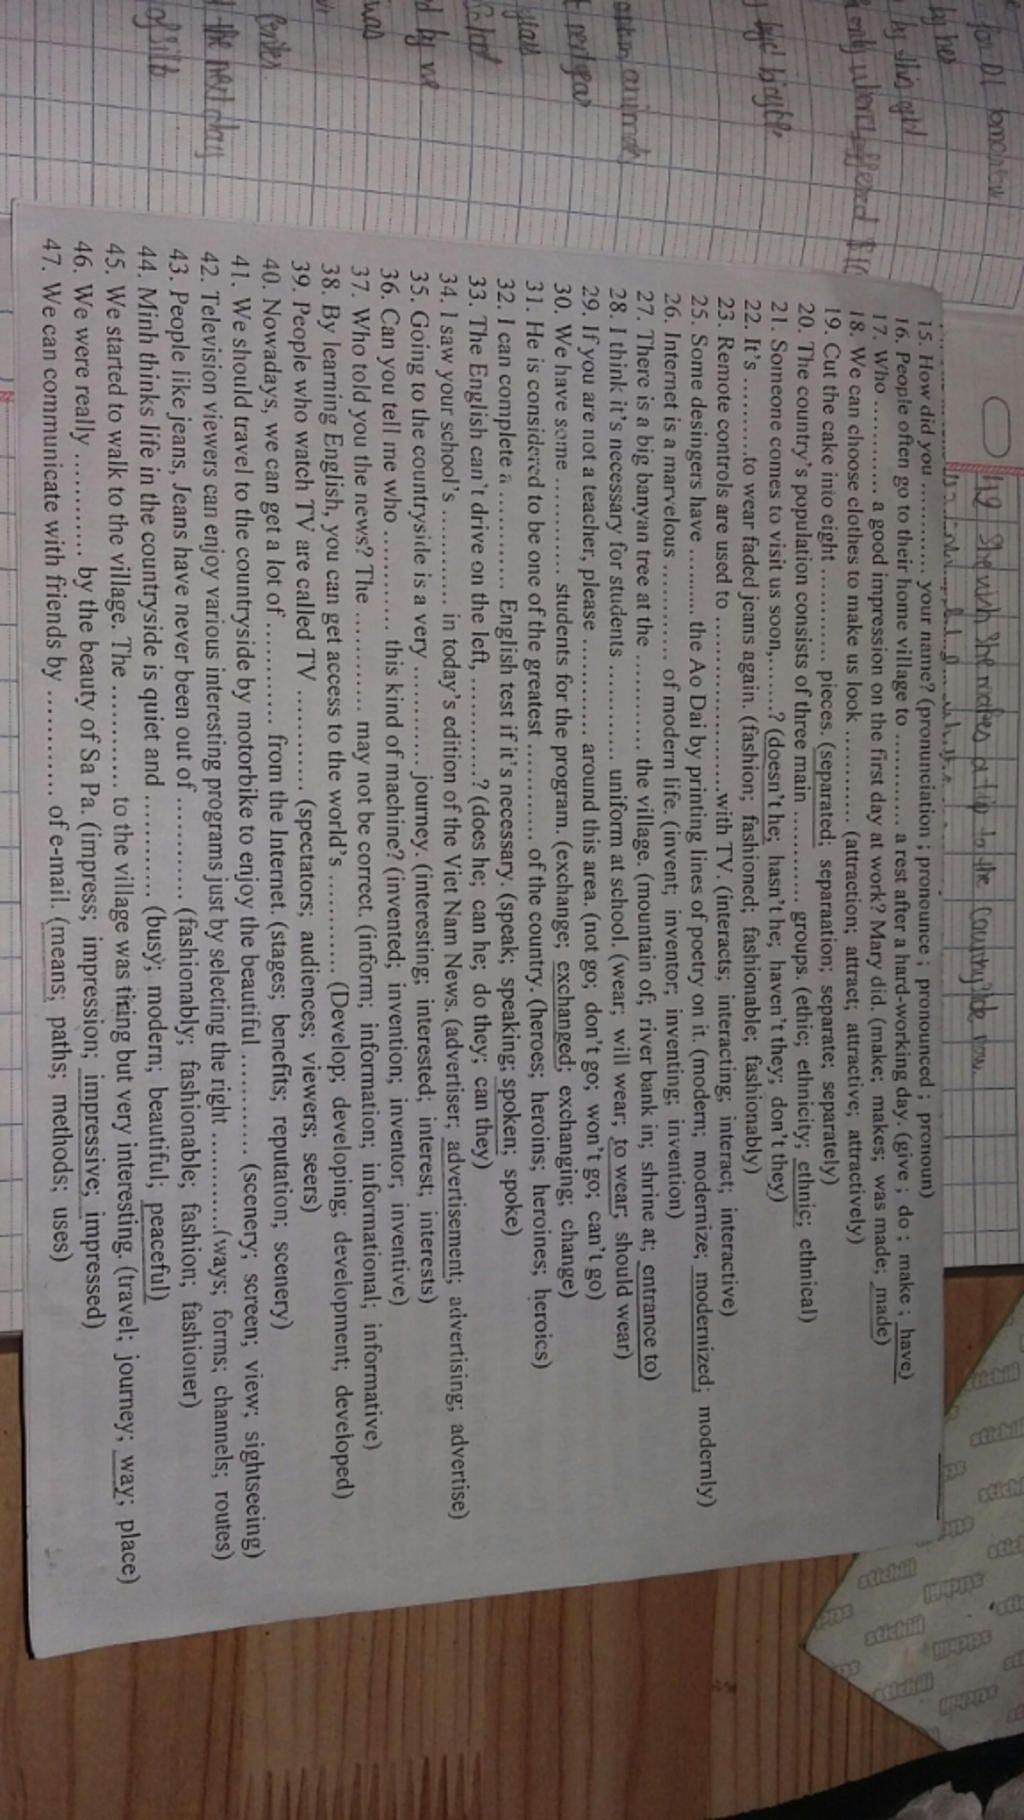 for D1 tomorrow
by her
by this girl
offered $10
by bicycle
next year
by me
was
the next day
42 She wish she makes a trip to the countryside now.
15. How did you .......... your name? (pronunciation ; pronounce ; pronounced ; pronoun)
16. People often go to their home village to .......... a rest after a hard-working day. (give ; do ; make ; have)
17. Who .......... a good impression on the first day at work? Mary did. (make; makes; was made; made)
18. We can choose clothes to make us look .......... (attraction; attract; attractive; attractively)
19. Cut the cake into eight .......... pieces. (separated; separation; separate; separately)
20. The country's population consists of three main .......... groups. (ethic; ethnicity; ethnic; ethnical)
21. Someone comes to visit us soon,.....? (doesn't he; hasn't he; haven't they; don't they)
22. It's ..........to wear faded jeans again. (fashion; fashioned; fashionable; fashionably)
23. Remote controls are used to ....................with TV. (interacts; interacting; interact; interactive)
25. Some desingers have .......... the Ao Dai by printing lines of poetry on it. (modern; modernize; modernized; modernly)
26. Internet is a marvelous .......... of modern life. (invent; inventor; inventing; invention)
27. There is a big banyan tree at the .......... the village. (mountain of; river bank in; shrine at; entrance to)
28. I think it's necessary for students .......... uniform at school. (wear; will wear; to wear; should wear)
29. If you are not a teacher, please .......... around this area. (not go; don't go; won't go; can't go)
30. We have some .......... students for the program. (exchange; exchanged; exchanging; change)
31. He is considered to be one of the greatest .......... of the country. (heroes; heroins; heroines; heroics)
32. I can complete a .......... English test if it's necessary. (speak; speaking; spoken; spoke)
33. The English can't drive on the left, ..........? (does he; can he; do they; can they)
34. I saw your school's .......... in today's edition of the Viet Nam News. (advertiser; advertisement; advertising; advertise)
35. Going to the countryside is a very .......... journey. (interesting; interested; interest; interests)
36. Can you tell me who .......... this kind of machine? (invented; invention; inventor; inventive)
37. Who told you the news? The .......... may not be correct. (inform; information; informational; informative)
38. By learning English, you can get access to the world's .......... (Develop; developing; development; developed)
39. People who watch TV are called TV .......... (spectators; audiences; viewers; seers)
40. Nowadays, we can get a lot of .......... from the Internet. (stages; benefits; reputation; scenery)
41. We should travel to the countryside by motorbike to enjoy the beautiful .......... (scenery; screen; view; sightseeing)
42. Television viewers can enjoy various interesting programs just by selecting the right ..........(ways; forms; channels; routes)
43. People like jeans, Jeans have never been out of .......... (fashionably; fashionable; fashion; fashioner)
44. Minh thinks life in the countryside is quiet and .......... (busy; modern; beautiful; peaceful)
45. We started to walk to the village. The .......... to the village was tiring but very interesting. (travel; journey; way; place)
46. We were really .......... by the beauty of Sa Pa. (impress; impression; impressive; impressed)
47. We can communicate with friends by .......... of e-mail. (means; paths; methods; uses)
stichill
stichill
stichill
stichill
stichill
stichill